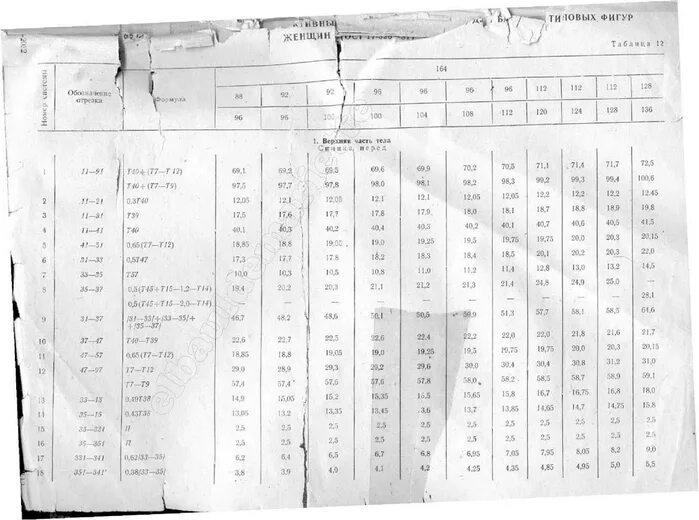 ТИПОВЫХ ФИГУР
ЖЕНЩИН
Таблица 12
Номер системы Обозначение отрезка Формула 164
88 92 92 96 96 96 96 112 112 112 128
96 96 100 100 104 108 112 120 124 128 136
1. Верхняя часть тела
Спинка, перед
1 11—91 Т40+(Т7—Т12) 69,1 69,2 69,5 69,6 69,9 70,2 70,5 71,1 71,4 71,7 72,5
Т40+(Т7—Т9) 97,5 97,7 97,8 98,0 98,1 98,2 98,3 99,2 99,3 99,4 100,6
2 11—21 0,3Т40 12,05 12,1 12,05 12,1 12,1 12,05 12,05 12,2 12,2 12,2 12,45
3 11—31 Т39 17,5 17,6 17,7 17,8 17,9 18,0 18,1 18,7 18,8 18,9 19,8
4 11—41 Т40 40,1 40,3 40,2 40,4 40,3 40,2 40,1 40,7 40,6 40,5 41,5
5 41—51 0,65(Т7—Т12) 18,85 18,8 19,05 19,0 19,25 19,5 19,75 19,75 20,0 20,3 20,15
6 31—33 0,5Т47 17,3 17,7 17,8 18,2 18,3 18,4 18,5 20,1 20,2 20,3 22,0
7 33—35 Т57 10,0 10,3 10,5 10,8 11,0 11,2 11,4 12,8 13,0 13,2 14,5
8 35—37 0,5(Т45+Т15—1,2—Т14) 19,4 20,2 20,3 21,1 21,2 21,3 21,4 24,8 24,9 25,0 —
0,5(Т45+Т15—2,0—Т14) — — — — — — — — — — 28,1
9 31—37 /31—33/+/33—35/+ 46,7 48,2 48,6 50,1 50,5 50,9 51,3 57,7 58,1 58,5 64,6
+/35—37/
10 37—47 Т40—Т39 22,6 22,7 22,5 22,6 22,4 22,2 22,0 22,0 21,8 21,6 21,7
11 47—57 0,65(Т7—Т12) 18,85 18,8 19,05 19,0 19,25 19,5 19,75 19,75 20,0 20,3 20,15
12 47—97 Т7—Т12 29,0 28,9 29,3 29,2 29,6 30,0 30,4 30,4 30,8 31,2 31,0
Т7—Т9 57,4 57,4 57,6 57,6 57,8 58,0 58,2 58,5 58,7 58,9 59,1
13 33—13 0,49Т38 14,9 15,05 15,2 15,35 15,5 15,65 15,8 16,7 16,75 16,8 18,0
14 35—15 0,43Т38 13,05 13,2 13,35 13,45 3,6 13,7 13,85 14,65 14,7 14,75 15,8
15 33—331 П 2,5 2,5 2,5 2,5 2,5 2,5 2,5 2,5 2,5 2,5 2,5
16 35—351 П 2,5 2,5 2,5 2,5 2,5 2,5 2,5 2,5 2,5 2,5 2,5
17 331—341 0,62/33—35/ 6,2 6,4 6,5 6,7 6,8 6,95 7,05 7,95 8,05 8,2 9,0
18 351—341' 0,38/33—35/ 3,8 3,9 4,0 4,1 4,2 4,25 4,35 4,85 4,95 5,0 5,5